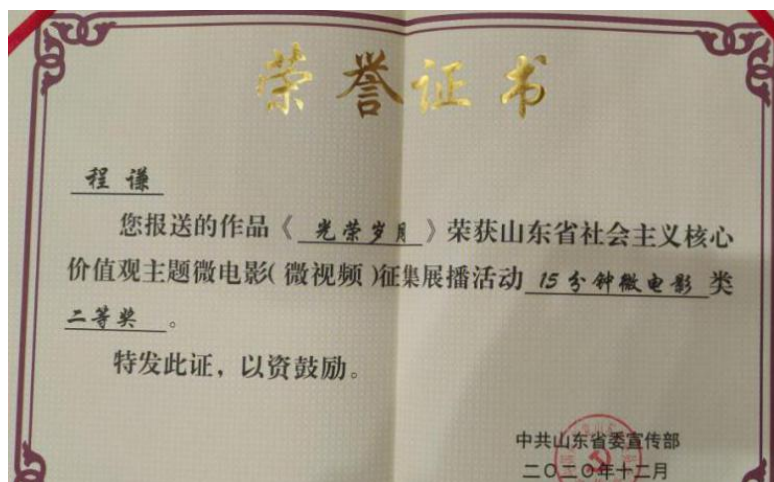 荣誉证书
程谦
您报送的作品《光荣岁月》荣获山东省社会主义核心
价值观主题微电影(微视频)征集展播活动15分钟微电影类
二等奖。
特发此证，以资鼓励。
中共山东省委宣传部
二〇二〇年十二月